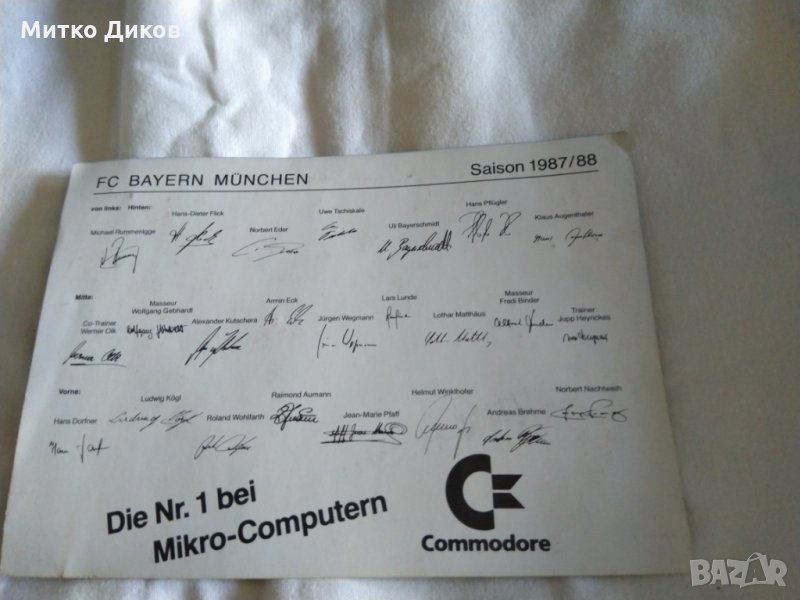 Митко Диков
FC BAYERN MÜNCHEN Saison 1987/88
von links: Hinten: Hans-Dieter Flick Uwe Tschiskale Hans Pflügler
Michael Rummenigge Norbert Eder Uli Bayerschmidt Klaus Augenthaler
Mitte: Masseur Wolfgang Gebhardt Armin Eck Lars Lunde Masseur Fredi Binder
Co-Trainer Werner Olk Alexander Kutschera Jürgen Wegmann Lothar Matthäus Trainer Jupp Heynckes
Vorne: Ludwig Kögl Raimond Aumann Helmut Winklhofer Norbert Nachtweih
Hans Dorfner Roland Wohlfarth Jean-Marie Pfaff Andreas Brehme
Die Nr. 1 bei
Mikro-Computern
Commodore
BAZAR